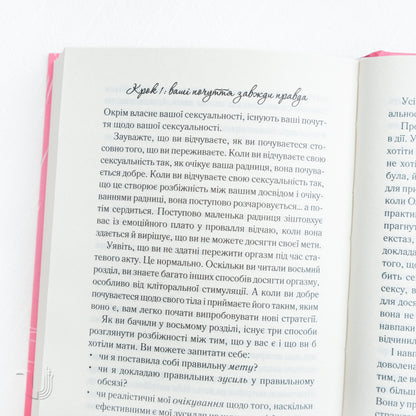 Крок 1: ваші почуття завжди правда
Окрім власне вашої сексуальності, існують ваші почут-
тя щодо вашої сексуальності.
Зауважте, що ви відчуваєте, як ви почуваєтеся сто-
совно того, що ви переживаєте. Коли ви відчуваєте свою
сексуальність так, як очікує ваша радниця, вона почува-
ється добре. Коли ви відчуваєте свою сексуальність так,
що це створює розбіжність між вашим досвідом і очіку-
ваннями радниці, вона поступово розчаровується... а по-
тім сердиться. Поступово маленька радниця зіштовхує
вас із емоційного плато у провалля відчаю, коли вона
здається й вирішує, що ви не можете досягти своєї мети.
Уявіть, що ви не здатні пережити оргазм під час ста-
тевого акту. Це нормально. Оскільки ви читали восьмий
розділ, ви знаєте багато інших способів досягти оргазму,
особливо від кліторальної стимуляції. А коли ви добре
почуваєтеся щодо свого тіла і приймаєте його таким, яким
воно є, вам легко почати випробовувати нові стратегії.
Як ви бачили у восьмому розділі, існує три способи
розглянути розбіжності між тим, що у вас є, і тим, що б ви
хотіли мати. Ви можете запитати себе:
• чи я поставила собі правильну мету?
• чи я докладаю правильних зусиль у правильному
обсязі?
• чи реалістичні мої очікування щодо того, наскільки
ефективними є мої зусилля
Усі
альнос
Про
в дії. У
хотіти
не хоті
була, й
для при
коли Ол
практи
прагнут
екстаз,
доклада
того, що
сексу, в
для
вона не
навпаки
відчинил
І навп
доволена
таким, я
то більш
Вона у пр